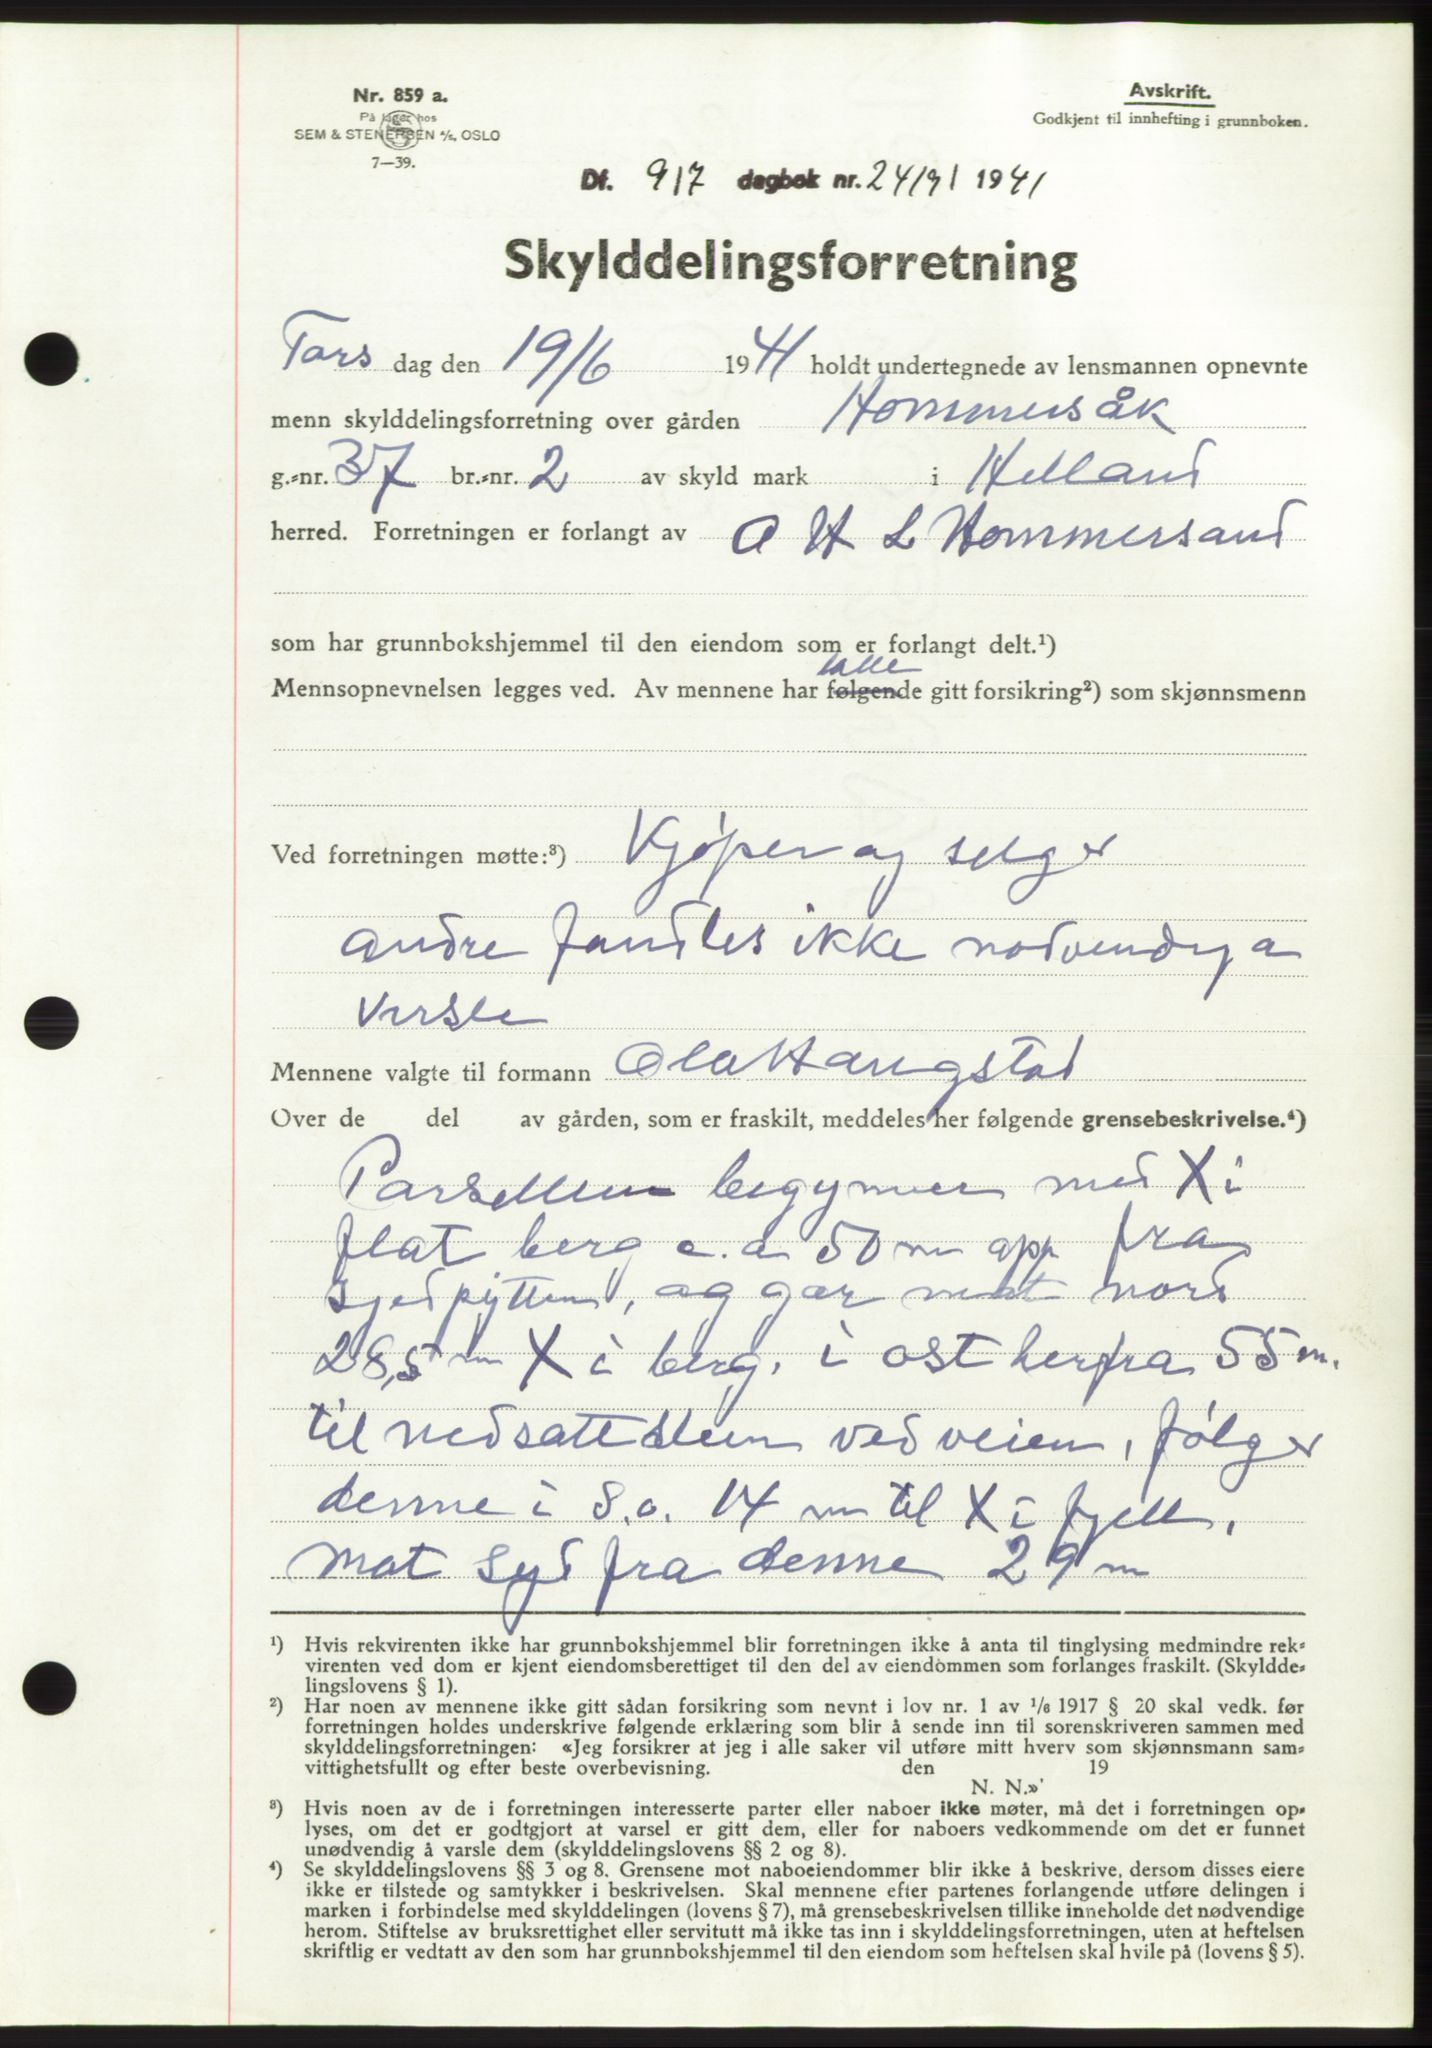 Nr. 859 a.
På lager hos
SEM & STENERSEN A/S, OSLO
7—39.
Avskrift.
Godkjent til innhefting i grunnboken.
Df. 917 dagbok nr. 24/9 1941
Skylddelingsforretning
Tors dag den 19/6 1941 holdt undertegnede av lensmannen opnevnte
menn skylddelingsforretning over gården Hommersåk
g.=nr. 37 br.=nr. 2 av skyld mark i Helland
herred. Forretningen er forlangt av O H L Hommersand
som har grunnbokshjemmel til den eiendom som er forlangt delt.¹)
alle
Mennsopnevnelsen legges ved. Av mennene har følgende gitt forsikring²) som skjønnsmenn
Ved forretningen møtte:³) Kjøper og selger
andre fandtes ikke nodvendig a
varsle
Mennene valgte til formann Ola Haugstad
Over de del av gården, som er fraskilt, meddeles her følgende grensebeskrivelse.⁴)
Parsellen begynner med X i
flat berg c.a 50 m opp fra
, og gar mot nord
28,5 m X i berg. i ost herfra 55 m.
til nedsatt sten ved veien, følger
denne i S.o. 14 m til X i fjell.
mot syd fra denne 29 m
¹) Hvis rekvirenten ikke har grunnbokshjemmel blir forretningen ikke å anta til tinglysing medmindre rek=
virenten ved dom er kjent eiendomsberettiget til den del av eiendommen som forlanges fraskilt. (Skyldde=
lingslovens § 1).
²) Har noen av mennene ikke gitt sådan forsikring som nevnt i lov nr. 1 av 1/6 1917 § 20 skal vedk. før
forretningen holdes underskrive følgende erklæring som blir å sende inn til sorenskriveren sammen med
skylddelingsforretningen: «Jeg forsikrer at jeg i alle saker vil utføre mitt hverv som skjønnsmann sam=
vittighetsfullt og efter beste overbevisning. den 19
N. N.»
³) Hvis noen av de i forretningen interesserte parter eller naboer ikke møter, må det i forretningen op=
lyses, om det er godtgjort at varsel er gitt dem, eller for naboers vedkommende om det er funnet
unødvendig å varsle dem (skylddelingslovens §§ 2 og 8).
⁴) Se skylddelingslovens §§ 3 og 8. Grensene mot naboeiendommer blir ikke å beskrive, dersom disses eiere
ikke er tilstede og samtykker i beskrivelsen. Skal mennene efter partenes forlangende utføre delingen i
marken i forbindelse med skylddelingen (lovens § 7), må grensebeskrivelsen tillike inneholde det nødvendige
herom. Stiftelse av bruksrettighet eller servitutt må ikke tas inn i skylddelingsforretningen, uten at heftelsen
skriftlig er vedtatt av den som har grunnbokshjemmel til den eiendom som heftelsen skal hvile på (lovens § 5).